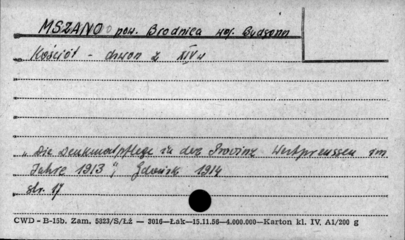 MSZANO pow. Brodnica woj. Bydgoszcz
Kościół - dzwon z XIV w
„Die Denkmalpflege in der Provinz Westpreussen im
Jahre 1913", Gdańsk 1914
str. 17
CWD - B-15b. Zam. 5323/S/Łż — 2016—Łak—15.11.56—4.000.000—Karton kl. IV. A1/200 g